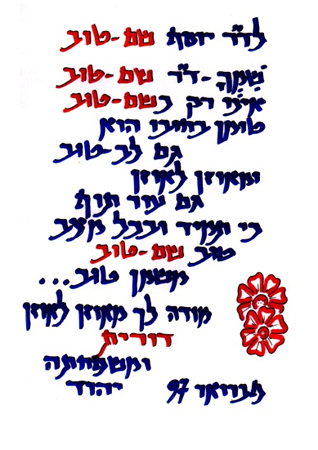 לד"ר יוסף שם-טוב
שִׁמְךָ - ד"ר שם-טוב
אינו רק בשם-טוב
טומן בחובו הוא
גם לב-טוב
ומאוזן לאוזן
גם עור תוף
כי תמיד ובכל מצב
טוב שם-טוב
משמן טוב...
מודה לך מאוזן לאוזן
דורית
ומשפחתה
פברואר 97 יהוד